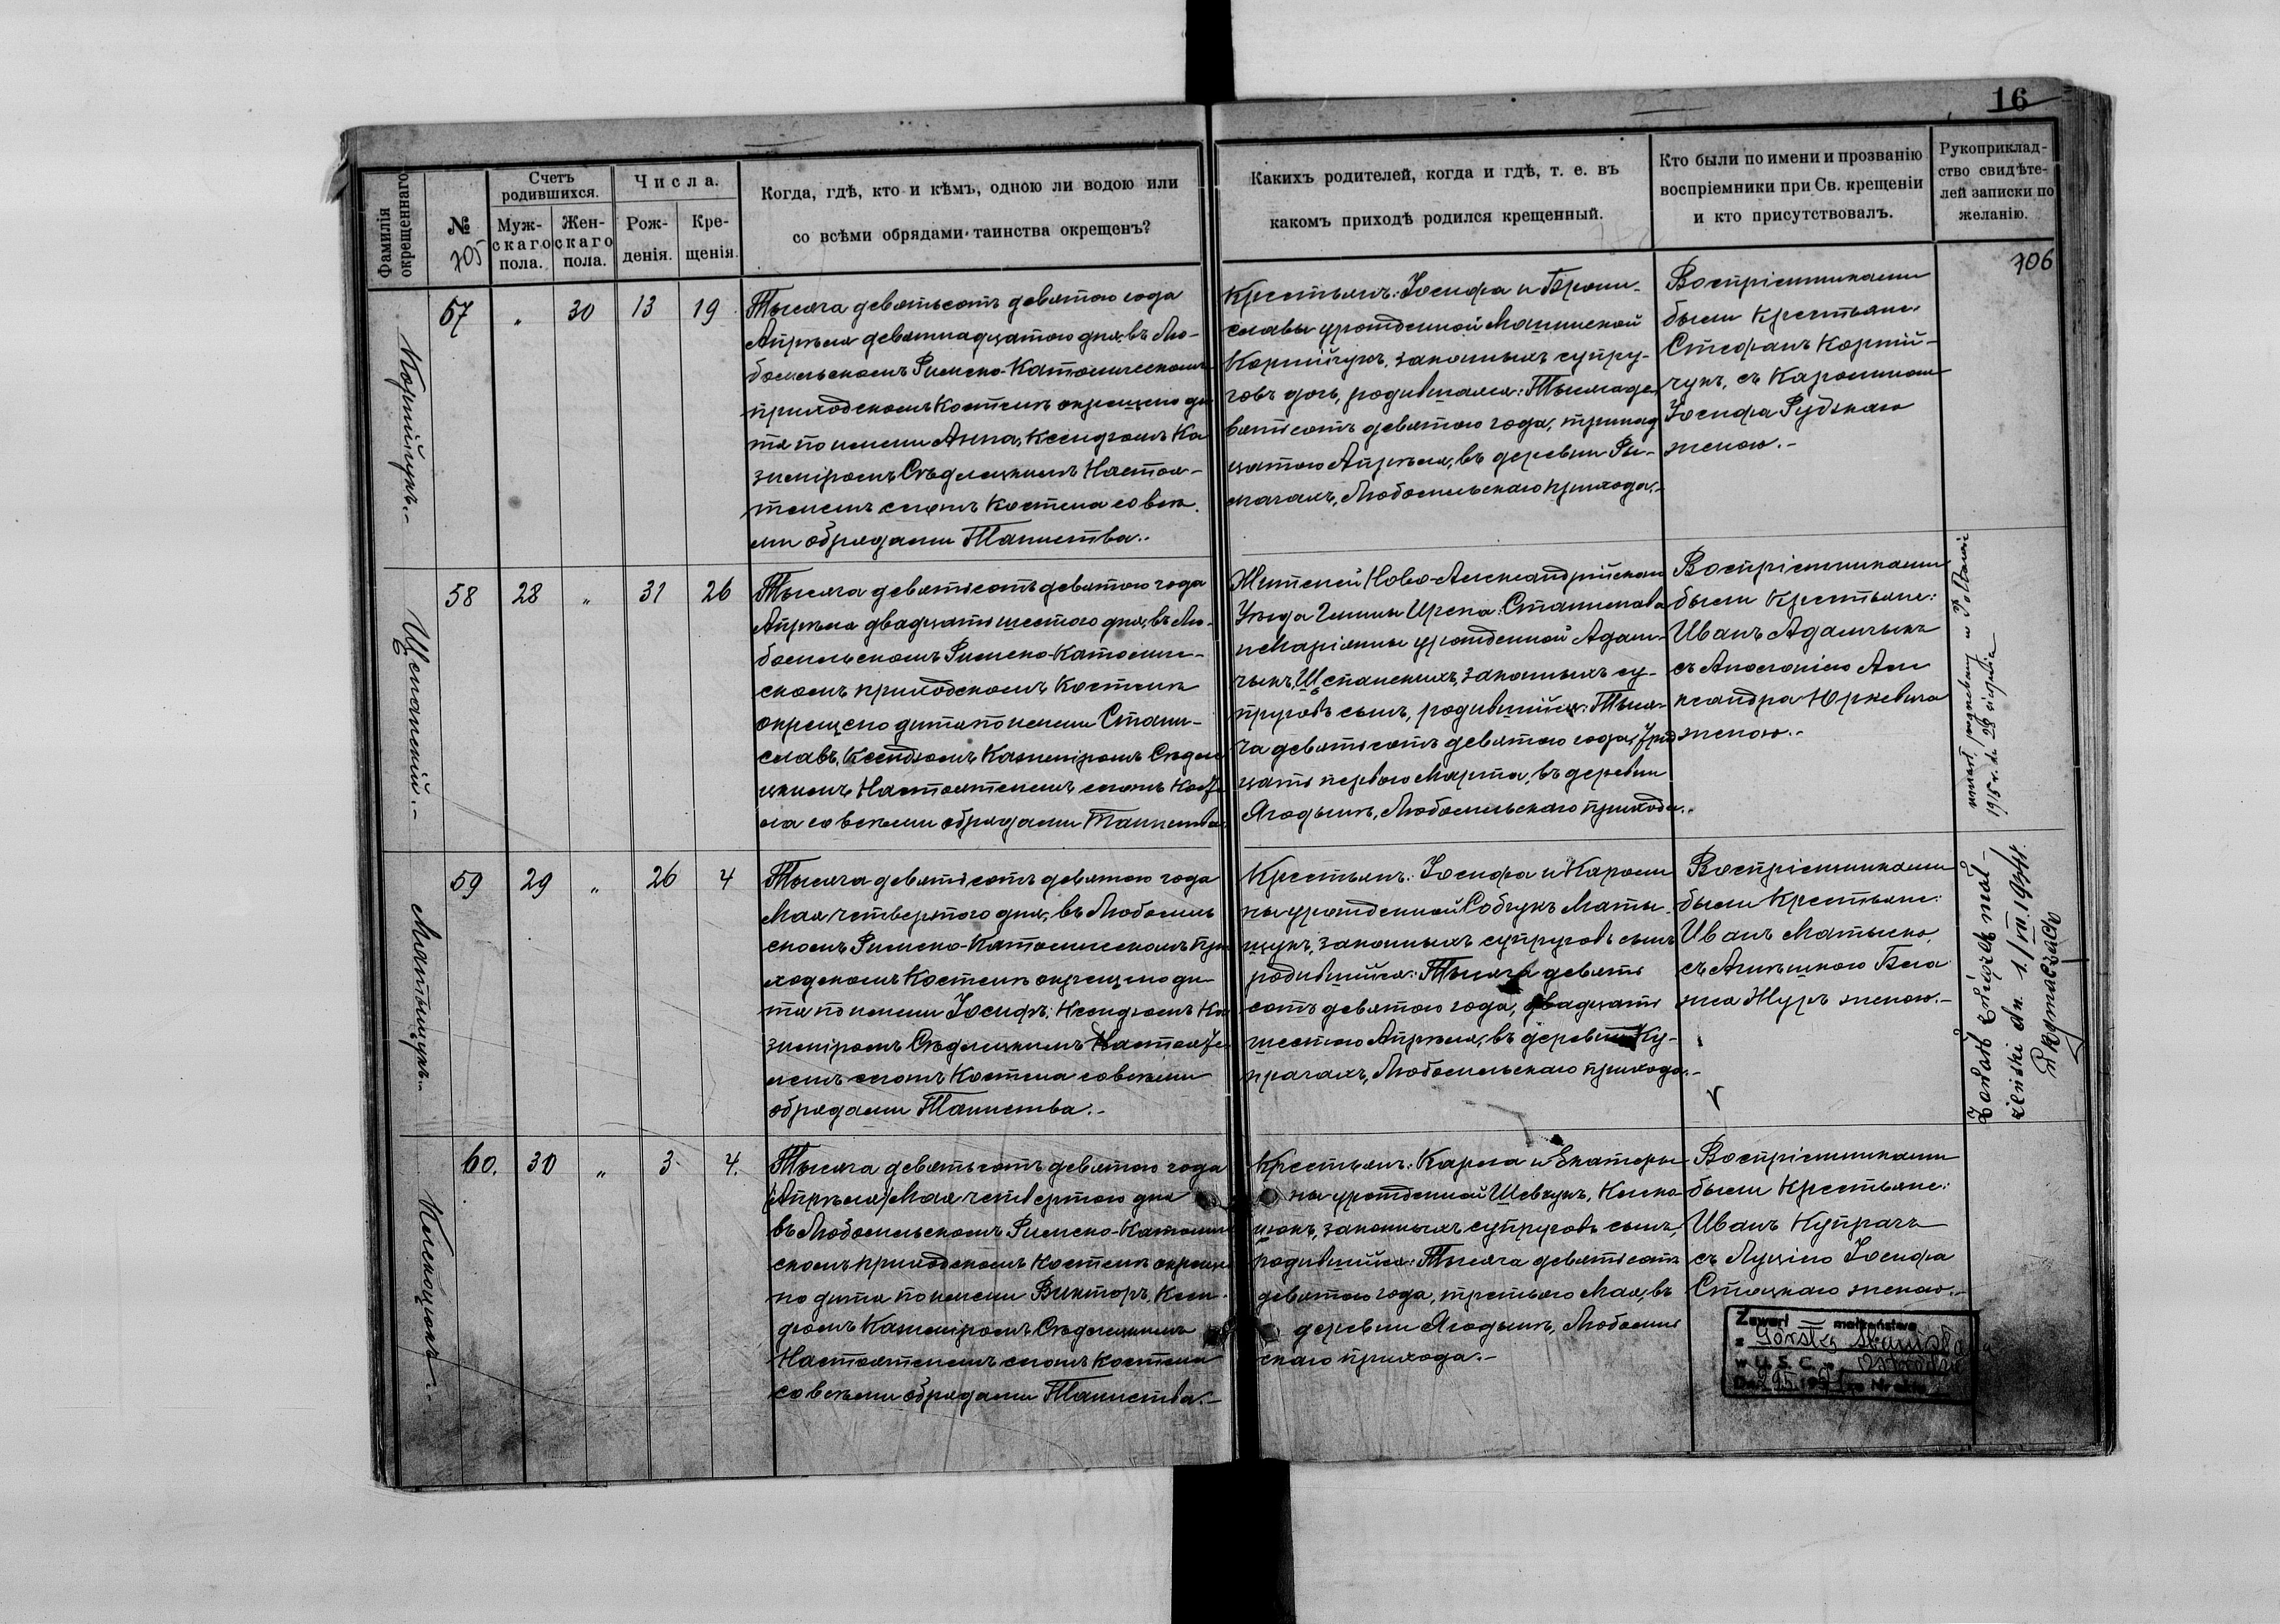 16
Фамилія окрещеннаго.
№
705
Счетъ родившихся.
Муж-скаго пола.
Жен-скаго пола.
Числа.
Рож-денія.
Кре-щенія.
Когда, гдѣ, кто и кѣмъ, одною ли водою или
со всѣми обрядами таинства окрещенъ?
Какихъ родителей, когда и гдѣ, т. е. въ
какомъ приходѣ родился крещенный.
Кто были по имени и прозванію
воспріемники при Св. крещеніи
и кто присутствовалъ.
Рукоприклад-
ство свидѣте-
лей записки по
желанію.
706
Корнійчукъ.-
57 " 30 13 19
Тысяча девятьсотъ девятого года
Апрѣля девятнадцатого дня, въ Лю-
бомльскомъ Римско-Католическомъ
приходскомъ Костелѣ окрещено ди
тя по имени Анна, Ксендзомъ Ка
зиміромъ Сѣдлецкимъ Настоя-
телемъ сего Костела со всѣ
ми обрядами Таинства..
Крестьянъ: Іосифа и Брони-
славы урожденной Машинской
Корнійчукъ, законныхъ супру-
говъ дочь, родившаяся: Тысяча де
вятьсотъ девятого года, тринад
цатого Апрѣля, въ деревни Ры-
мачахъ, Любомльскаго прихода.-
Воспріемниками
были Крестьяне:
Стефанъ Корній-
чукъ, съ Каролиною
Іосифа Рудзкаго
женою.-
Щепанскій.-
58 28 " 31 26
Тысяча девятьсотъ девятого года
Апрѣля двадцать шестого дня, въ Лю-
бомльскомъ Римско-Католиче-
скомъ приходскомъ Костелѣ
окрещено дитя по имени Стани-
славъ, Ксендзомъ Казиміромъ Сѣдле
цкимъ Настоятелемъ сего Косте
ла со всѣми обрядами Таинства.
Жителей Ново-Александрійскаго
Уѣзда Гмины Ирена: Станислава
и Маріянны урожденной Адам-
чыкъ, Щепанскихъ, законныхъ су-
пруговъ сынъ, родившійся: Тыся-
ча девятьсотъ девятого года, трид
цать перваго Марта, въ деревни
Ягодынѣ, Любомльскаго прихода..
Воспріемниками
были Крестьяне:
Иванъ Адамчыкъ
съ Аполоніею Але
ксандра Юркевича
женою..
1915 r. d. 28 sierpnia
Матыщукъ..
59 29 " 26 4
Тысяча девятьсотъ девятого года
Мая четвертого дня, въ Любомль
скомъ Римско-Католическомъ При
ходскомъ Костелѣ окрещено ди-
тя по имени Іосифъ, Ксендзомъ Ка
зиміромъ Сѣдлецкимъ Настояте
лемъ сего Костела со всѣми
обрядами Таинства.-
Крестьянъ: Іосифа и Кароли
ны урожденной Собчукъ Маты
щукъ, законныхъ супруговъ сынъ
родившійся: Тысяча девять
сотъ девятого года, двадцать
шестого Апрѣля, въ деревни Ку-
прачахъ, Любомльскаго прихода.-
Воспріемниками
были Крестьяне:
Иванъ Матыско,
съ Агнѣшкою Бла
жея Журъ женою.-
Zawarł związek mał-
żeński dn. 1/VII. 1934 r.
Келекоцюкъ.
60. 30 " 3 4.
Тысяча девятьсотъ девятого года
(Апрѣля) Мая четвертого дня
въ Любомльскомъ Римско-Католиче
скомъ приходскомъ Костелѣ окреще
но дитя по имени Викторъ, Ксен-
дзомъ Казиміромъ Сѣдлецкимъ
Настоятелемъ сего Костела
со всѣми обрядами Таинства.-
Крестьянъ: Карла и Екатери
ны урожденной Шевчукъ,
цюкъ, законныхъ супруговъ сынъ,
родившійся: Тысяча девятьсотъ
девятого года, третьяго Мая, въ
деревни Ягодынѣ, Любомль
скаго прихода.-
Воспріемниками
были Крестьяне:
Иванъ Купрачъ
съ Луціею Іосифа
Стоцкаго женою.-
Zawarł małżeństwo
z Górską Stanisławą
w U. S. C. w